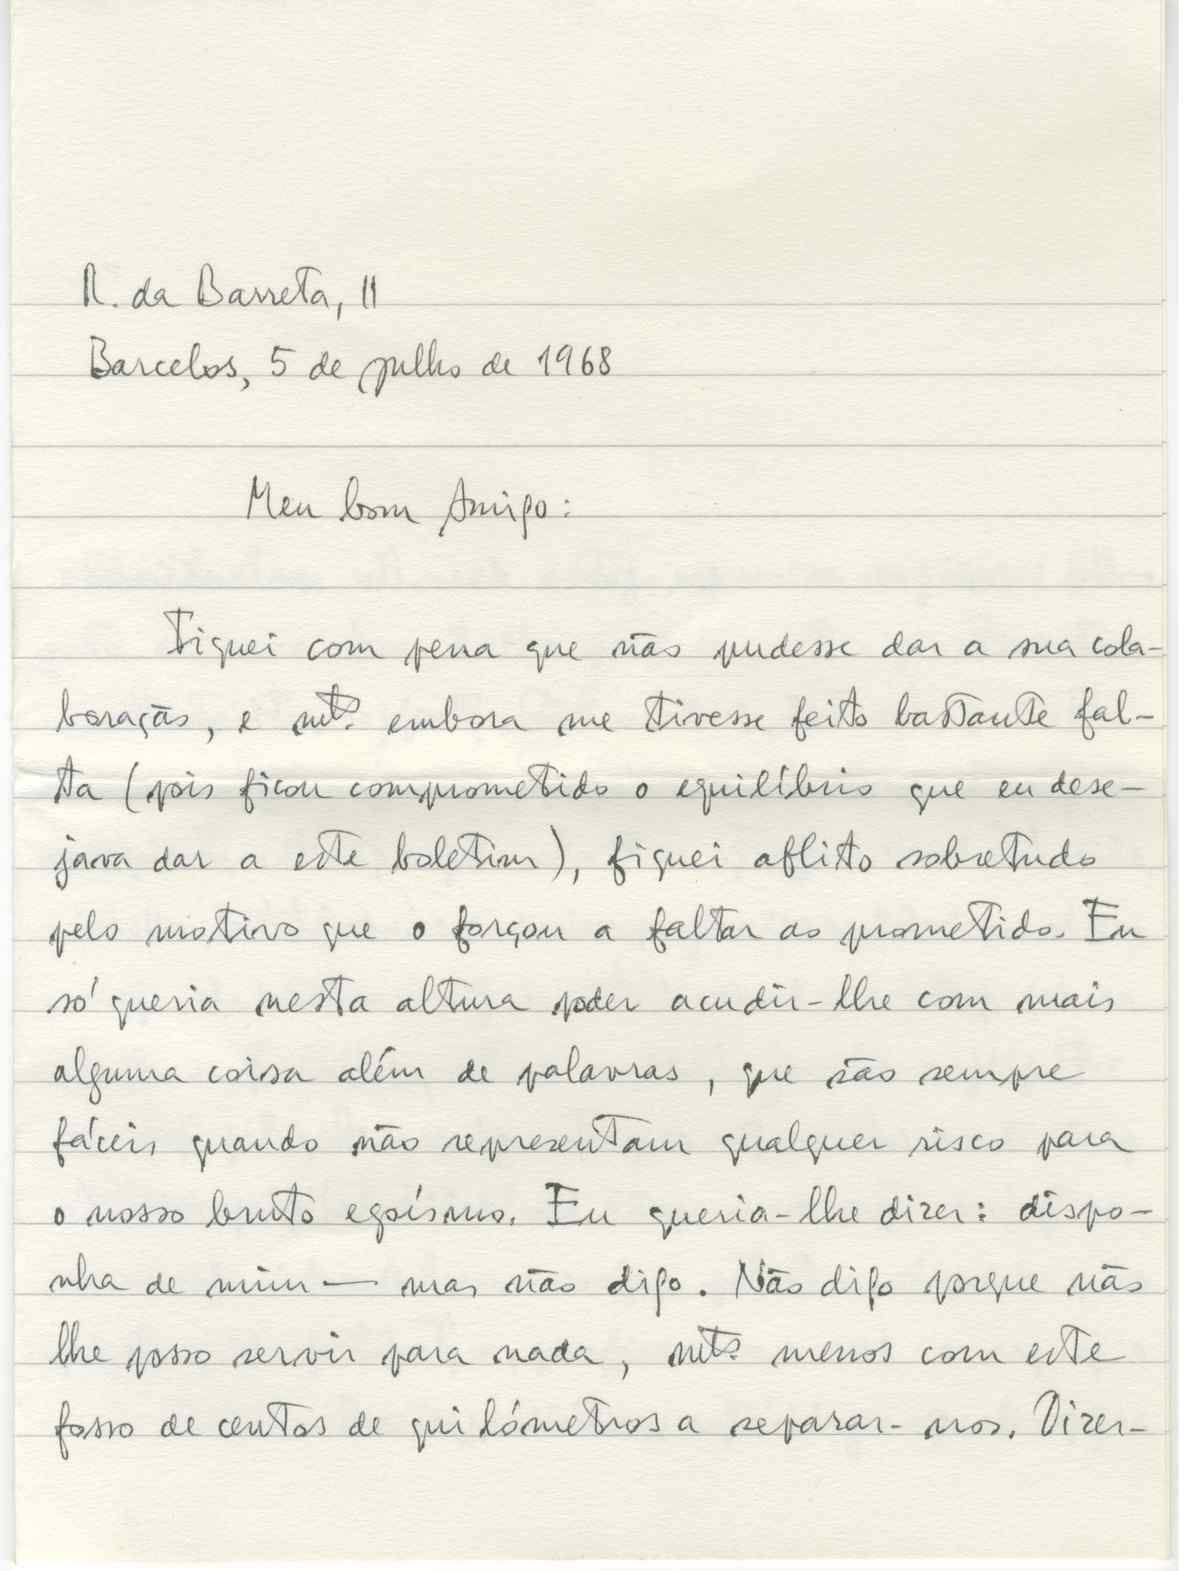 R. da Barreta, 11
Barcelos, 5 de julho de 1968
Meu bom Amigo:
Fiquei com pena que não pudesse dar a sua cola-
boração, e mtº. embora me tivesse feito bastante fal-
ta (pois ficou comprometido o equilíbrio que eu dese-
java dar a este boletim), fiquei aflito sobretudo
pelo motivo que o forçou a faltar ao prometido. Eu
só queria nesta altura poder acudir-lhe com mais
alguma coisa além de palavras, que são sempre
fáceis quando não representam qualquer risco para
o nosso bruto egoísmo. Eu queria-lhe dizer: dispo-
nha de mim — mas não digo. Não digo porque não
lhe posso servir para nada, mtº. menos com este
fosso de centos de quilómetros a separar-nos. Dizer-